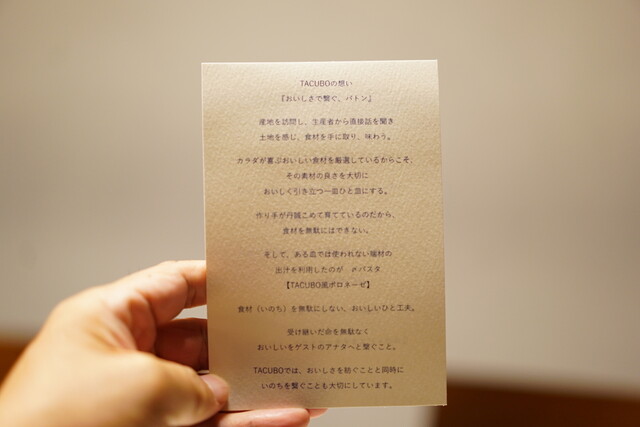 TACUBOの想い
『おいしさで繋ぐ、バトン』
産地を訪問し、生産者から直接話を聞き
土地を感じ、食材を手に取り、味わう。
カラダが喜ぶおいしい食材を厳選しているからこそ、
その素材の良さを大切に
おいしく引き立つ一皿ひと皿にする。
作り手が丹誠こめて育てているのだから、
食材を無駄にはできない。
そして、ある皿では使われない端材の
出汁を利用したのが 〆パスタ
【TACUBO風ボロネーゼ】
食材(いのち)を無駄にしない、おいしいひと工夫。
受け継いだ命を無駄なく
おいしいをゲストのアナタへと繋ぐこと。
TACUBOでは、おいしさを紡ぐことと同時に
いのちを繋ぐことも大切にしています。